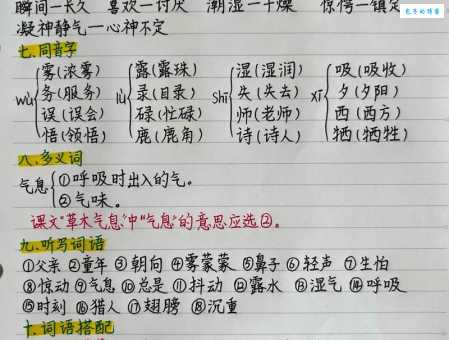 瞬间—长久 喜欢—讨厌 潮湿—干燥 惊愕—镇定
凝神静气—心神不定
七.同音字
wù 雾(浓雾) lù 露(露珠) shī 湿(湿润) xī 吸(吸收)
务(服务) 录(目录) 失(失去) 夕(夕阳)
误(误会) 碌(忙碌) 师(老师) 西(西方)
悟(领悟) 鹿(鹿角) 诗(诗人) 牺(牺牲)
八.多义词
气息 ①呼吸时出入的气。
②气味。
课文"草木气息"中"气息"的意思应选②。
九.听写词语
①父亲 ②童年 ③朝向 ④雾蒙蒙 ⑤鼻子 ⑥轻声 ⑦生怕
⑧惊动 ⑨气息 ⑩总是 ⑪抖动 ⑫露水 ⑬湿气 ⑭呼吸
⑮时刻 ⑯猎人 ⑰翅膀 ⑱沉重
十.词语搭配